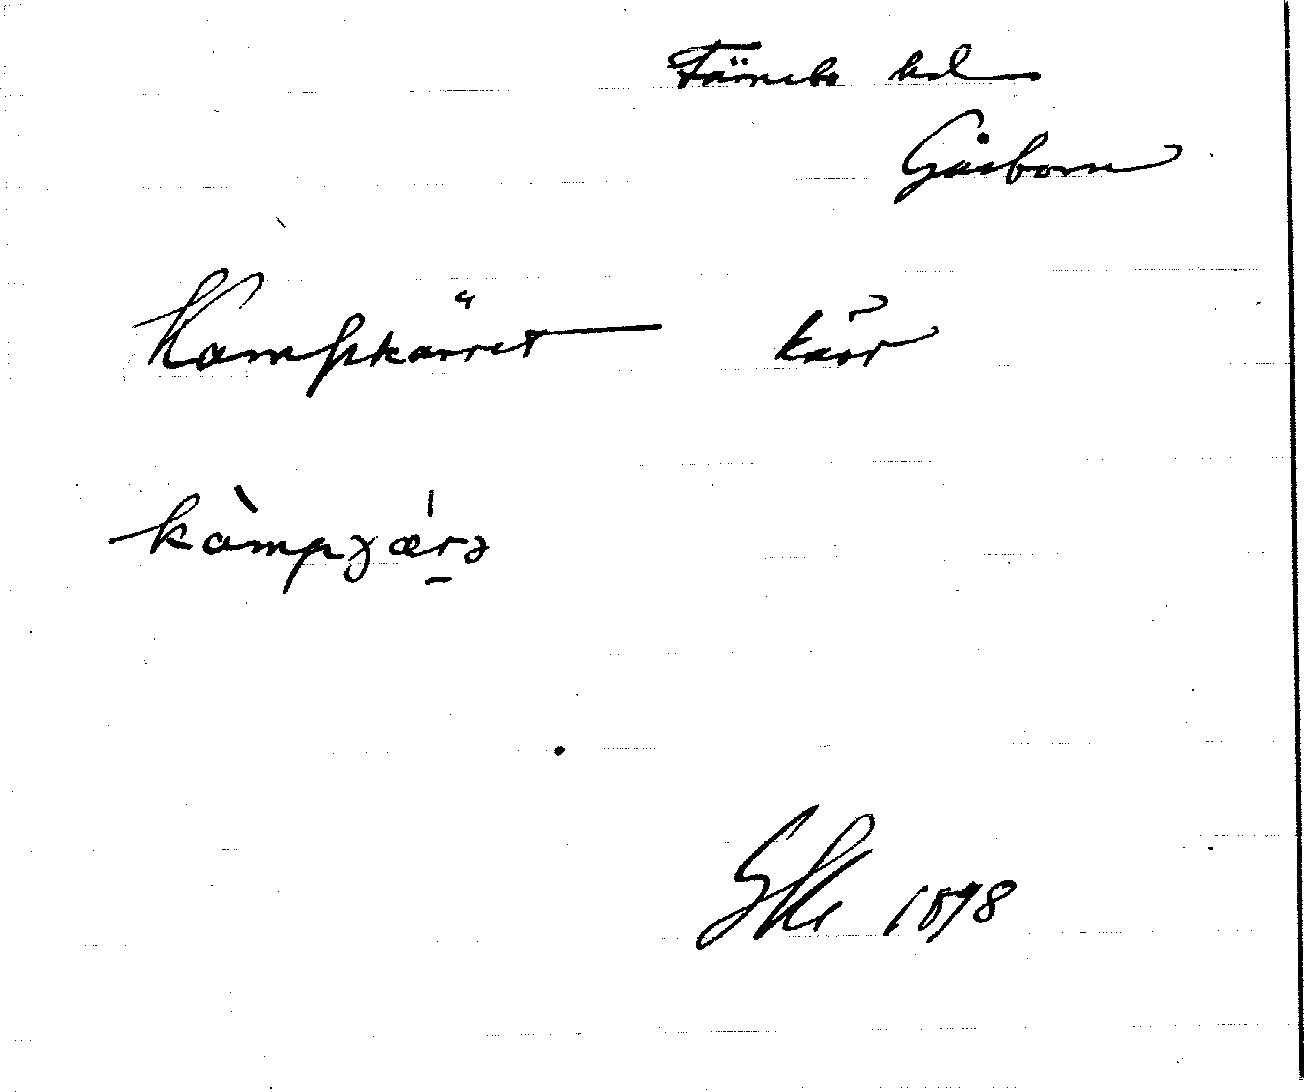 Färnebo hd
Gåsborn
Kampkärret kärr
kàmpʒæ̀rə
1898